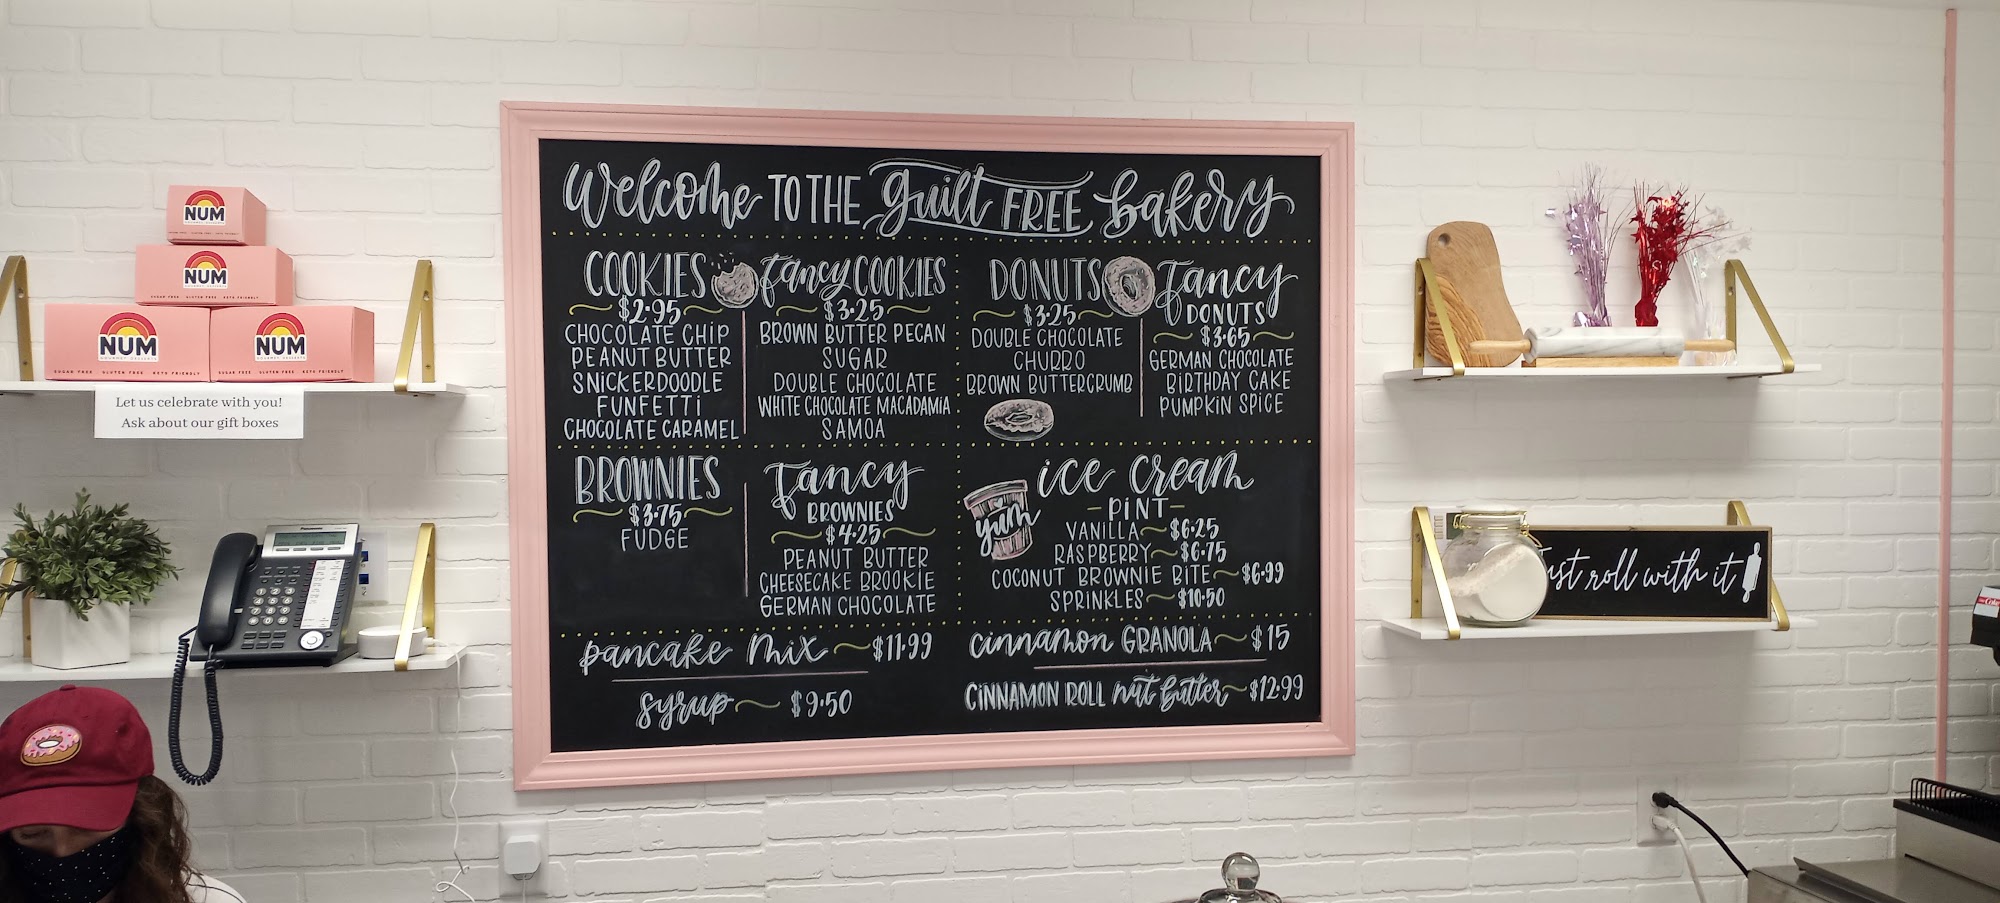 Welcome TO THE guilt FREE bakery
COOKIES
$2.95
CHOCOLATE CHIP
PEANUT BUTTER
SNICKERDOODLE
FUNFETTI
CHOCOLATE CARAMEL
fancy COOKIES
$3.25
BROWN BUTTER PECAN
SUGAR
DOUBLE CHOCOLATE
WHITE CHOCOLATE MACADAMIA
SAMOA
DONUTS
$3.25
DOUBLE CHOCOLATE
CHURRO
BROWN BUTTERCRUMB
fancy
DONUTS
$3.65
GERMAN CHOCOLATE
BIRTHDAY CAKE
PUMPKIN SPICE
BROWNIES
$3.75
FUDGE
fancy
BROWNIES
$4.25
PEANUT BUTTER
CHEESECAKE BROOKIE
GERMAN CHOCOLATE
yum
ice cream
-PINT-
VANILLA~$6.25
RASPBERRY~$6.75
COCONUT BROWNIE BITE~$6.99
SPRINKLES~$10.50
pancake mix~$11.99
syrup~$9.50
cinnamon GRANOLA~$15
CINNAMON ROLL nut butter~$12.99
NUM
NUM
SUGAR FREE GLUTEN FREE KETO FRIENDLY
NUM
GOURMET DESSERTS
SUGAR FREE GLUTEN FREE KETO FRIENDLY
NUM
GOURMET DESSERTS
SUGAR FREE GLUTEN FREE KETO FRIENDLY
Let us celebrate with you!
Ask about our gift boxes
Panasonic
ust roll with it